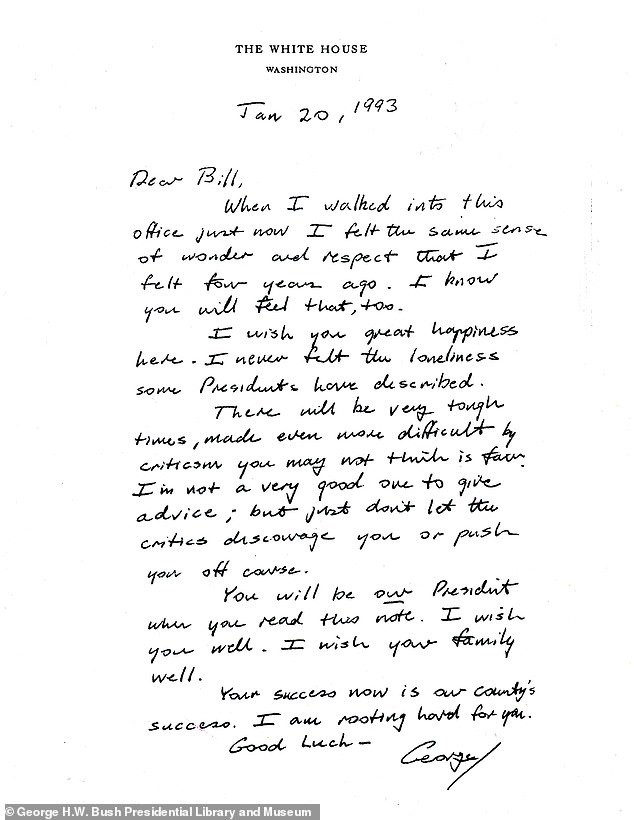 THE WHITE HOUSE
WASHINGTON
Jan 20, 1993
Dear Bill,
When I walked into this
office just now I felt the same sense
of wonder and respect that I
felt four years ago. I know
you will feel that, too.
I wish you great happiness
here. I never felt the loneliness
some Presidents have described.
There will be very tough
times, made even more difficult by
criticism you may not think is fair.
I'm not a very good one to give
advice; but just don't let the
critics discourage you or push
you off course.
You will be our President
when you read this note. I wish
you well. I wish your family
well.
Your success now is our county's
success. I am rooting hard for you.
Good Luck –
George
© George H.W. Bush Presidential Library and Museum